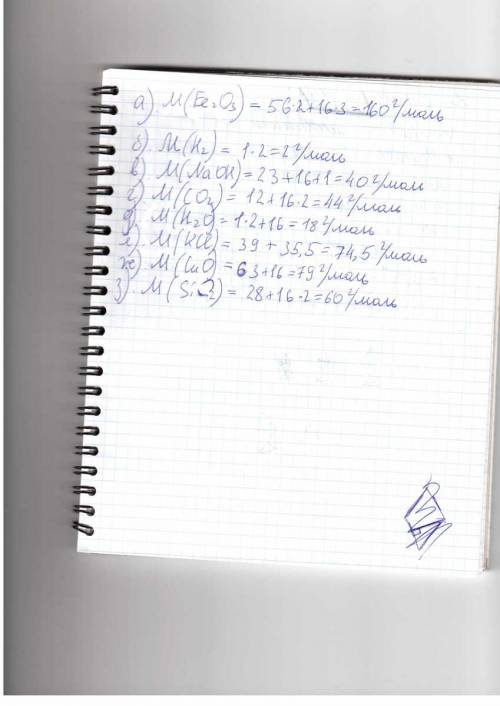 а). M(Fe₂O₃) = 56·2+16·3=160 г/моль
б). M(H₂) = 1·2=2 г/моль
в). M(NaOH)=23+16+1=40 г/моль
г). M(CO₂) = 12+16·2=44 г/моль
д). M(H₂O)=1·2+16=18 г/моль
е). M(KCl)= 39 + 35,5=74,5 г/моль
ж). M(CuO)=63+16=79 г/моль
з). M(SiO₂)= 28+16·2=60 г/моль